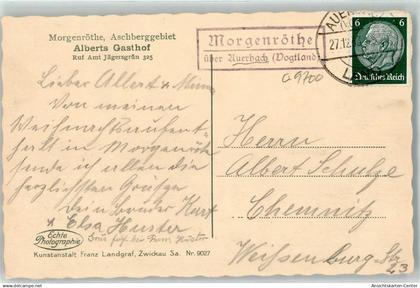 Morgenröthe, Aschberggebiet
Alberts Gasthof
Ruf Amt Jägersgrün 325
Morgenröthe
über Auerbach (Vogtland)
AUERBACH
27.12.
6 6
Deutsches Reich
a 9700
Lieber Albert & Mimi
Von meinen
Weihnachtsaufent-
halt in Morgenröthe
sende ich allen die
herzlichsten Grüsse
Dein Bruder Kurt
& Elsa Huster
Herrn
Albert Schulze
Chemnitz
Weissenburg Str
23
Echte
Photographie
Kunstanstalt Franz Landgraf, Zwickau Sa. Nr. 9027